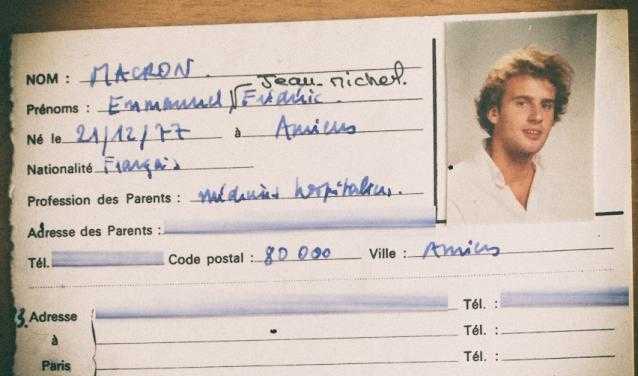 NOM : MACRON
Jean-Michel.
Prénoms : Emmanuel Frédéric
Né le 21/12/77 à Amiens
Nationalité Français
Profession des Parents : médecins hospitaliers.
Adresse des Parents :
Tél. Code postal : 80 000 Ville : Amiens
Adresse Tél. :
à Tél. :
Paris Tél. :